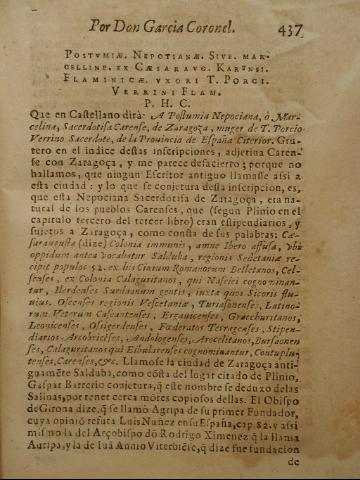 Por Don Garcia Coronel. 437
POSTVMIÆ. NEPOTIANÆ. SIVE. MAR-
CELLINE. EX CÆSARAVG. KARENSI.
FLAMINICÆ. VXORI T. PORCI.
VERRINI FLAM.
P. H. C.
Que en Castellano dirà: A Postumia Nepociana, ò Mar-
celina, Sacerdotisa Carense, de Zaragoça, muger de T. Porcio
Verrino Sacerdote, de la Provincia de España Citerior. Gru-
tero en el indice destas inscripciones, adjetiva Caren-
se con Zaragoça, y me parece desacierto; porque no
hallamos, que ningun Escritor antiguo llamasse assi a
esta ciudad: y lo que se conjetura desta inscripcion, es,
que esta Nepociana Sacerdotisa de Zaragoça, era na-
tural de los pueblos Carenses, que (segun Plinio en el
capitulo tercero del tercer libro) eran estipendiarios, y
sujetos a Zaragoça, como consta de sus palabras: Cæ-
saraugusta (dize) Colonia immunis, amne Ibero affusa, vbi
oppidum antea vocabatur Salduba, regionis Sedetaniæ re-
cipit populos 52. ex his Civium Romanorum Belletanos, Cel-
senses, ex Colonia Calaguritanos, qui Nascici cognominan-
tur, Ilerdenses Surdaonum gentis, iuxta quos Sicoris flu-
uius. Oscenses regionis Vescetaniæ, Turiasonenses, Latino-
rum Veterum Cascantenses, Ergauicenses, Graccburitanos,
Leonicenses, Osigerdenses, Fœderatos Terragenses, Stipen-
diarios Arcobricenses, Andologenses, Arocelitanos, Bursaonen-
ses, Calaguritanos qui Fibularenses cognominantur, Contuplu-
tenses, Carenses, &c. Llamose la ciudad de Zaragoça anti-
guamẽte Salduba, como cõsta del lugar citado de Plinio,
Gaspar Barrerio conjetura, q̃ este nombre se deduzo de las
Salinas, por tener cerca mõtes copiosos dellas. El Obispo
de Girona dize, q̃ se llamò Agripa de su primer Fundador,
cuya opiniõ refuta Luis Nuñez en su España, cap. 82. y assi
mismo la del Arçobispo dõ Rodrigo Ximenez q̃ la llama
Auripa, y la de Iuã Annio Viterbiẽse, q̃ dize fue fundacion
de